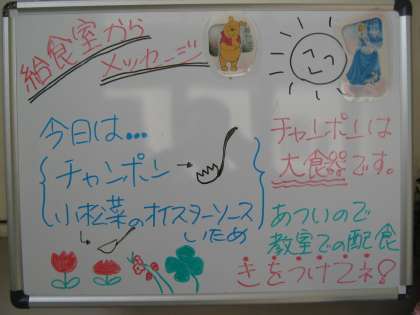 給食室から
メッセージ
今日は...
チャンポン
小松菜のオイスターソース
いため
チャンポンは
大食器です。
あついので
教室での配食
きをつけてネ!